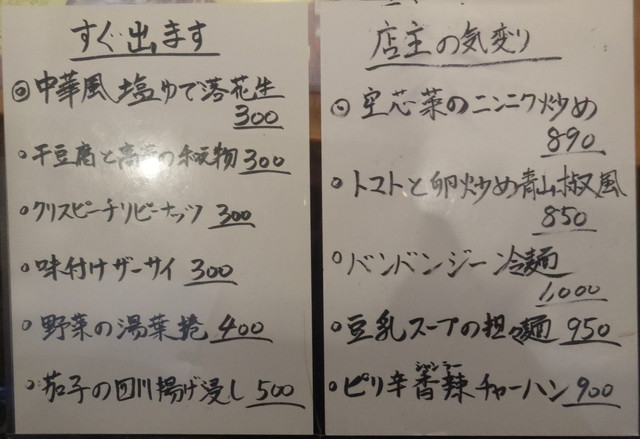 すぐ出ます
中華風 塩ゆで落花生
300
干豆腐と の和え物 300
クリスピーチリピーナッツ 300
味付けザーサイ 300
野菜の湯葉捲 400
茄子の四川揚げ浸し 500
店主の気変り
空芯菜のニンニク炒め
890
トマトと卵炒め青山椒風
850
バンバンジー冷麺
1,000
豆乳スープの担々麺 950
シャンラー
ピリ辛香辣チャーハン 900